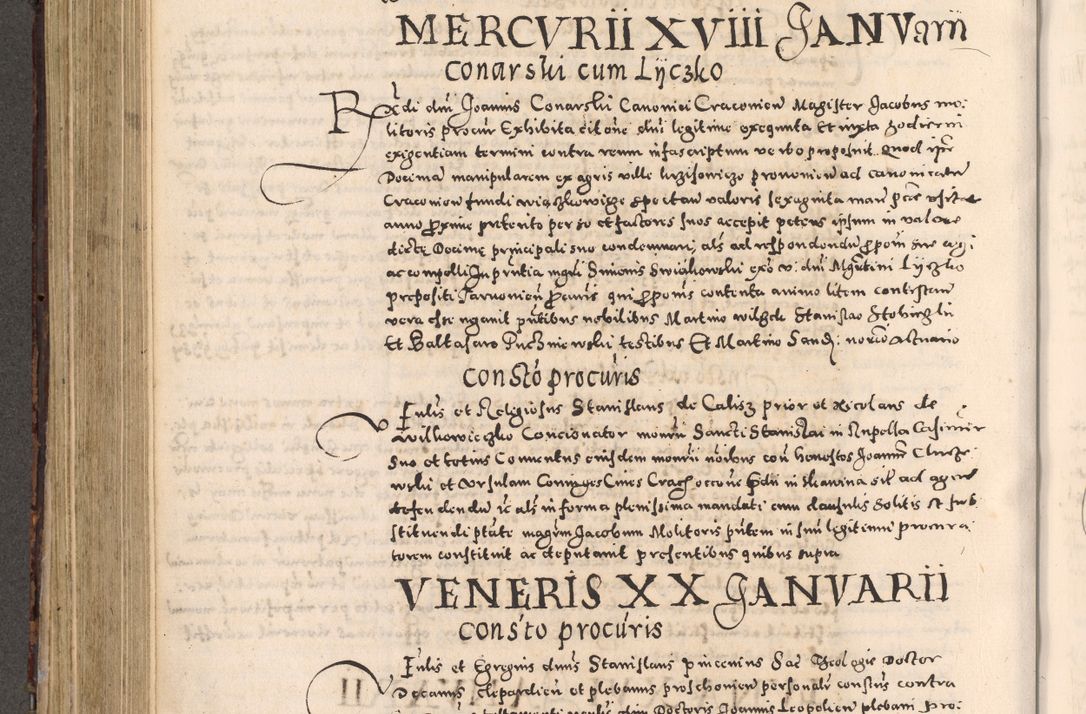 MERCVRII XVIII JANVarii
Conarski cum Lyczko
Rndi dni Joannis Conarski Canonici Cracovien Magister Jacobus mo-
litoris procur Exhibita citone dni legitime exequuta Et iuxta hodierni
exigentiam termini contra reum infrascriptum verbo proposuit. Quod ipse
Decimam manipularem ex agris ville provenien ad canonicatum
Cracovien fundi spectan valoris sexaginta mar
anno proxime preterito per se et factores suos accepit petens ipsum in valore
dicte Decime principali suo condemnari, als ad respondendum cogi
ac compelli In pntia mgri Simonis dni Martini Lyczko
prepositi Tarnovien procuris qui propositis contenta animo litem contestan
vera esse negavit pntibus nobilibus Martino Stanislao
Et Baltasaro testibus Et Martino Sandj. notario Actuario
Consto procuris
Venlis et Religiosus Stanislaus de Calisz prior et Nicolaus de
Wilkowieczko Concionator monrii Sancti Stanislai in Rupella Casimir
suo et totius Conventus eiusdem monrii noibus con honestos Joannem
wski et Vrsulam Coniuges Cives Crac occone in Skawina sit ad agend
defendendum ic als in forma plenissima mandati cum clausulis solitis et sub
stituendi ptate magrum Jacobum Molitoris pntem in suum legitimum procura
torem constituit ac deputavit presentibus quibus supra
VENERIS XX JANVARII
Consto procuris
Venlis et Egregius dnus Stanislaus pincenius Sac Theologie Doctor
Decanus Clepardien et plebanus proschovien personalr constus contra
Doctoris Joannis Leopolien plebani Pro-